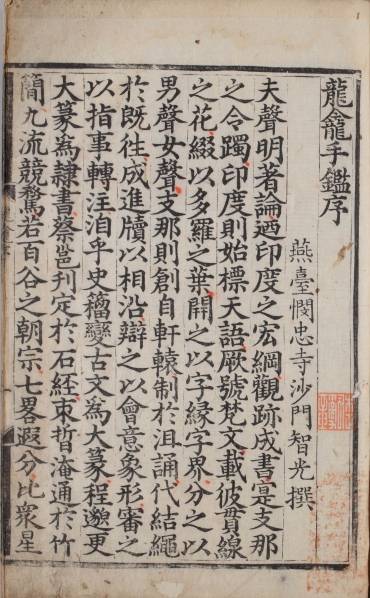 龍龕手鑑序
燕臺憫忠寺沙門智光撰
夫聲明著論迺印度之宏綱觀跡成書寔支那
之令躅印度則始標天語厥號梵文載彼貫線
之花綴以多羅之葉開之以字緣字界分之以
男聲女聲支那則創自軒轅制於沮誦代結繩
於既往成進牘以相沿辯之以會意象形審之
以指事轉注洎乎史籀變古文為大篆程邈更
大篆為隷書蔡邕刊定於石經束晳淹通於竹
簡九流競騖若百谷之朝宗七畧遐分比衆星